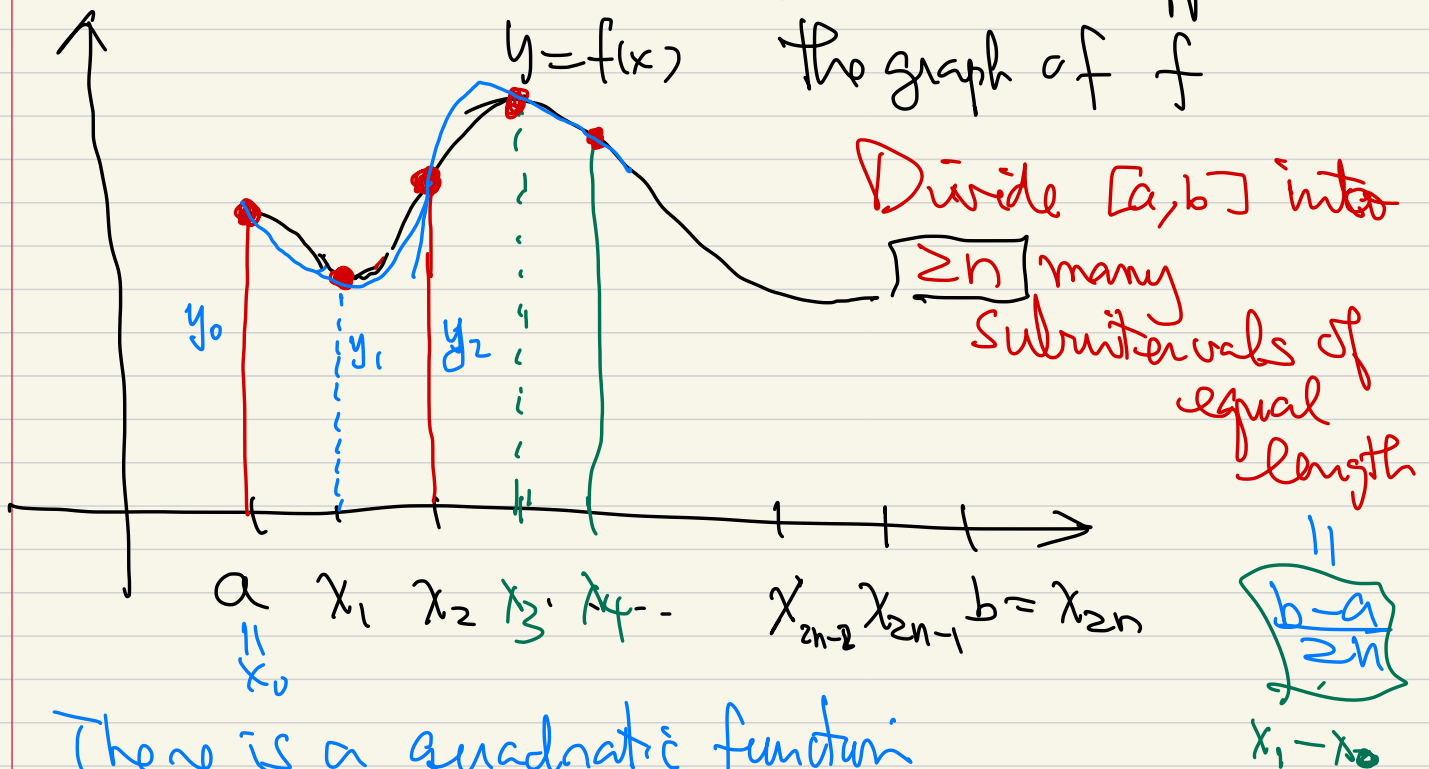 y = f(x) the graph of f
Divide [a,b] into
2n many
subintervals of
equal
length
=
b-a
2n
x₁ - x₀
y₀ y₁ y₂
a x₁ x₂ x₃ x₄ -- x₂ₙ₋₂ x₂ₙ₋₁ b = x₂ₙ
=
x₀
There is a quadratic function